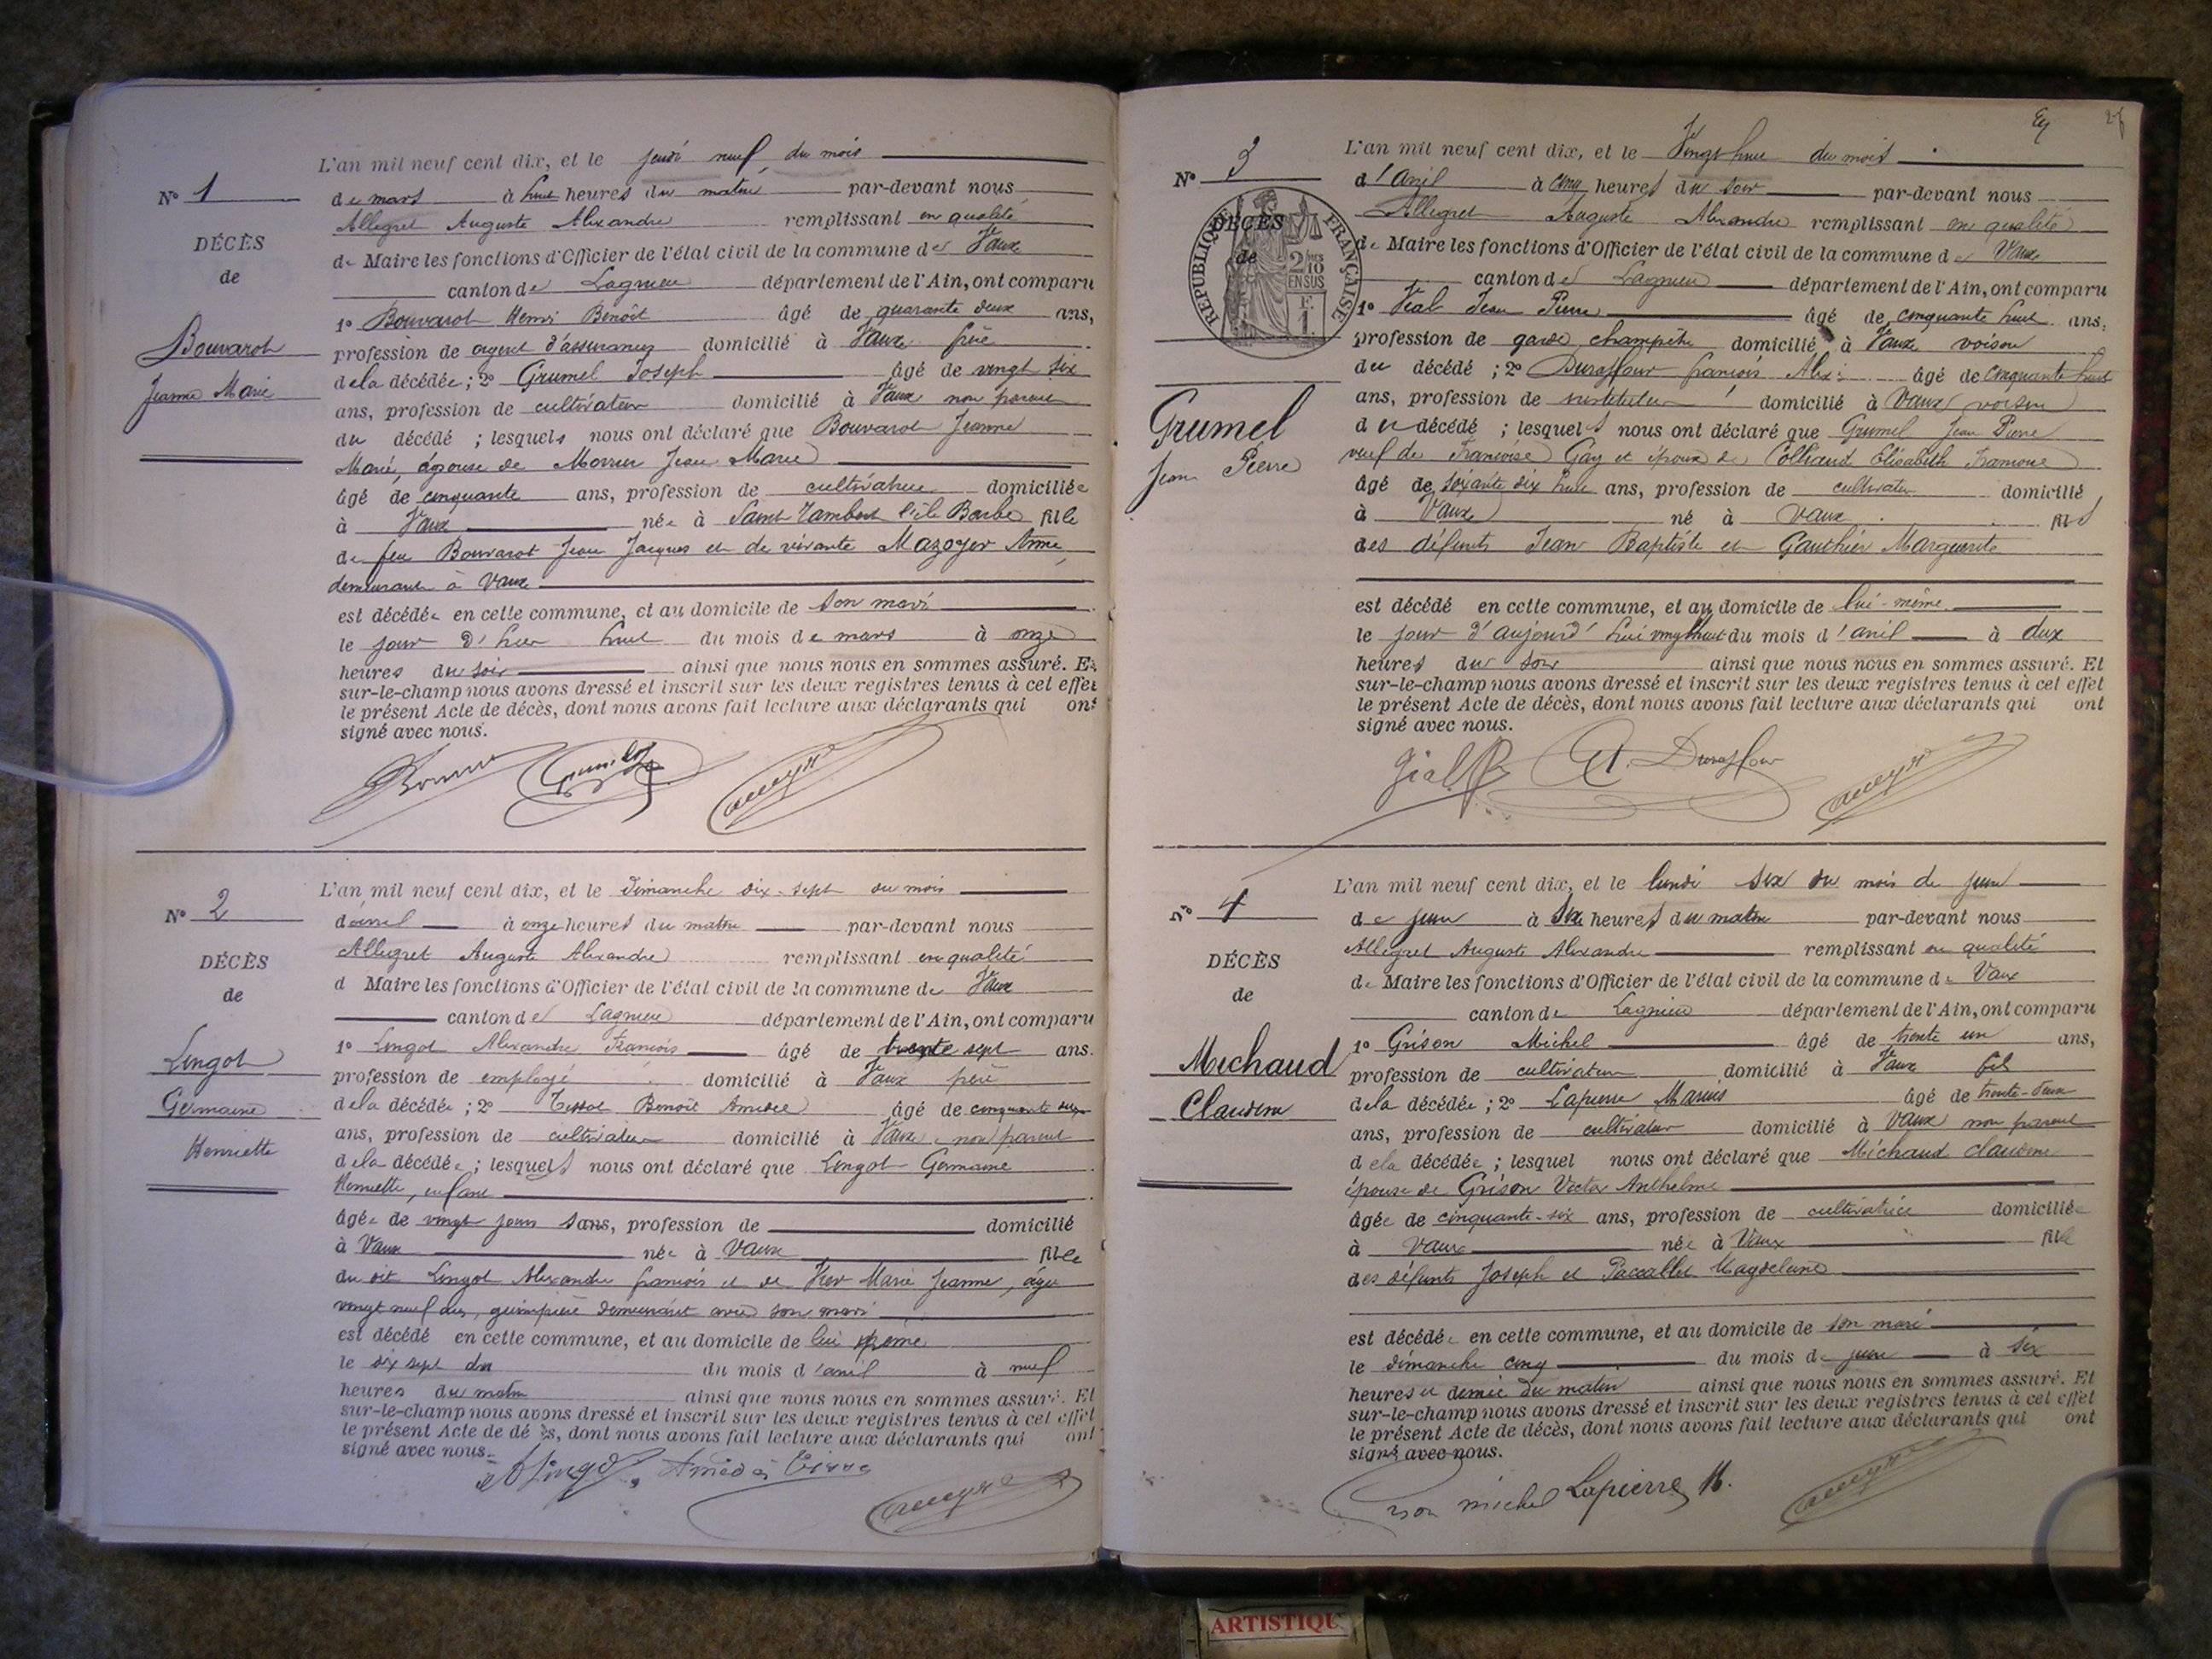 L'an mil neuf cent dix, et le jeudi neuf du mois
N° 1
de mars à huit heures du matin par-devant nous
Allegret Auguste Alexandre remplissant en qualité
DÉCÈS
de Maire les fonctions d'Officier de l'état civil de la commune de Vaux
de
canton de Lagnieu département de l'Ain, ont comparu
1° Bouvarot Henri Benoît âgé de quarante deux ans,
Bouvarot
profession de agent d'assurances domicilié à Vaux frère
de la décédée ; 2° Grumel Joseph âgé de vingt six
Jeanne Marie
ans, profession de cultivateur domicilié à Vaux non parent
du décédé ; lesquels nous ont déclaré que Bouvarot Jeanne
Marie, épouse de Jean Marie
âgé de cinquante ans, profession de cultivatrice domiciliée
à Vaux née à Saint Rambert l'île Barbe fille
de feu Bouvarot Jean Jacques et de vivante Mazoyer Anne,
demeurant à Vaux
est décédée en cette commune, et au domicile de son mari
le jour d'hier huit du mois de mars à onze
heures du soir ainsi que nous nous en sommes assuré. Et
sur-le-champ nous avons dressé et inscrit sur les deux registres tenus à cet effet
le présent Acte de décès, dont nous avons fait lecture aux déclarants qui ont
signé avec nous.
L'an mil neuf cent dix, et le dimanche dix-sept du mois
N° 2
d'avril à onze heures du matin par-devant nous
Allegret Auguste Alexandre remplissant en qualité
DÉCÈS
d Maire les fonctions d'Officier de l'état civil de la commune de Vaux
de
canton de Lagnieu département de l'Ain, ont comparu
1° Lingot Alexandre François âgé de trente sept ans.
Lingot
profession de employé domicilié à Vaux père
Germaine
de la décédée ; 2° Tissot Benoît Amédée âgé de cinquante
ans, profession de cultivateur domicilié à Vaux non parent
Henriette
de la décédée ; lesquels nous ont déclaré que Lingot Germaine
Henriette, enfant
âgée de vingt jours sans, profession de domicilié
à Vaux née à Vaux fille
du dit Lingot Alexandre françois et de Marie Jeanne, âgée
vingt neuf ans, guimpière demeurant avec son mari
est décédé en cette commune, et au domicile de lui même
le dix sept du du mois d'avril à neuf
heures du matin ainsi que nous nous en sommes assuré. Et
sur-le-champ nous avons dressé et inscrit sur les deux registres tenus à cet effet
le présent Acte de décès, dont nous avons fait lecture aux déclarants qui ont
signé avec nous.
A Lingot Amédée Tissot
L'an mil neuf cent dix, et le Vingt huit du mois
N° 3
d'avril à cinq heures du soir par-devant nous
Allegret Auguste Alexandre remplissant en qualité
DÉCÈS
de Maire les fonctions d'Officier de l'état civil de la commune de Vaux
de
RÉPUBLIQUE FRANÇAISE
2/10
EN SUS
F.
1.
canton de Lagnieu département de l'Ain, ont comparu
1° Vial Jean Pierre âgé de cinquante huit ans,
profession de garde champêtre domicilié à Vaux voisin
du décédé ; 2° Duraffour françois Alexis âgé de cinquante huit
ans, profession de instituteur domicilié à Vaux voisin
Grumel
du décédé ; lesquels nous ont déclaré que Grumel Jean Pierre
Jean Pierre
veuf de Françoise Gay et époux de Colliard Elisabeth Françoise
âgé de soixante dix huit ans, profession de cultivateur domicilié
à Vaux né à Vaux fils
des défunts Jean Baptiste et Gauthier Marguerite
est décédé en cette commune, et au domicile de lui-même
le jour d'aujourd'hui vingt huit du mois d'avril à deux
heures du soir ainsi que nous nous en sommes assuré. Et
sur-le-champ nous avons dressé et inscrit sur les deux registres tenus à cet effet
le présent Acte de décès, dont nous avons fait lecture aux déclarants qui ont
signé avec nous.
Vial A. Duraffour
L'an mil neuf cent dix, et le lundi six du mois de juin
N° 4
de juin à six heures du matin par-devant nous
Allegret Auguste Alexandre remplissant en qualité
DÉCÈS
de Maire les fonctions d'Officier de l'état civil de la commune de Vaux
de
canton de Lagnieu département de l'Ain, ont comparu
1° Grison Michel âgé de trente un ans,
Michaud
profession de cultivateur domicilié à Vaux fils
Claudine
de la décédée ; 2° Lapierre Marius âgé de trente-deux
ans, profession de cultivateur domicilié à Vaux non parent
de la décédée ; lesquel nous ont déclaré que Michaud claudine
épouse de Grison Victor Anthelme
âgée de cinquante-six ans, profession de cultivatrice domiciliée
à Vaux née à Vaux fille
des défunts Joseph et Paccallet Magdeleine
est décédée en cette commune, et au domicile de son mari
le dimanche cinq du mois de juin à six
heures et demie du matin ainsi que nous nous en sommes assuré. Et
sur-le-champ nous avons dressé et inscrit sur les deux registres tenus à cet effet
le présent Acte de décès, dont nous avons fait lecture aux déclarants qui ont
signé avec nous.
michel Lapierre M.
ARTISTIQU